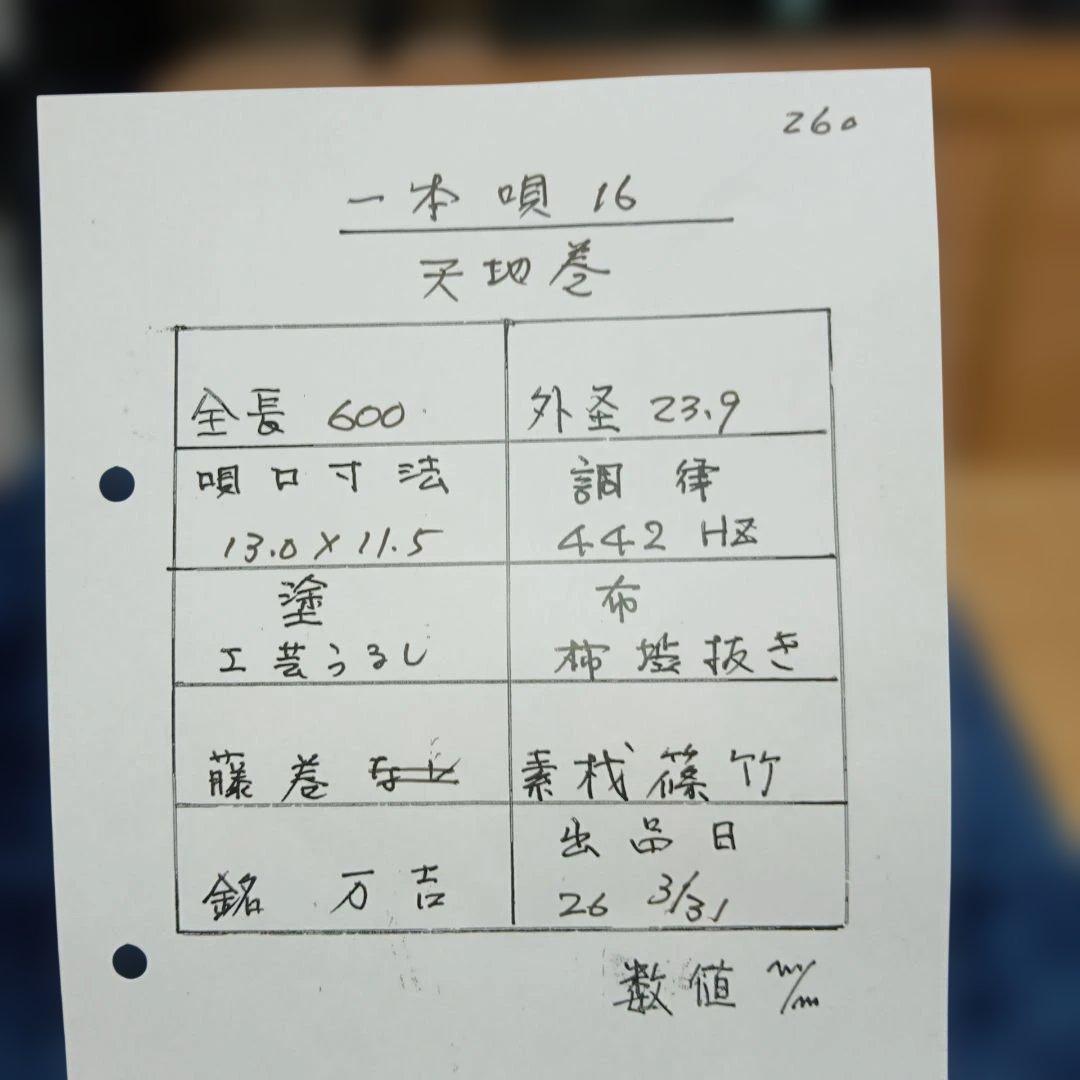 260
一本唄 16
天地巻
全長 600
外径 23.9
唄口寸法
13.0 × 11.5
調律
442 HZ
塗
工芸うるし
布
柿渋抜き
藤巻 なし
素材 篠竹
銘 万吉
出品日
26 3/31
数値 m/m